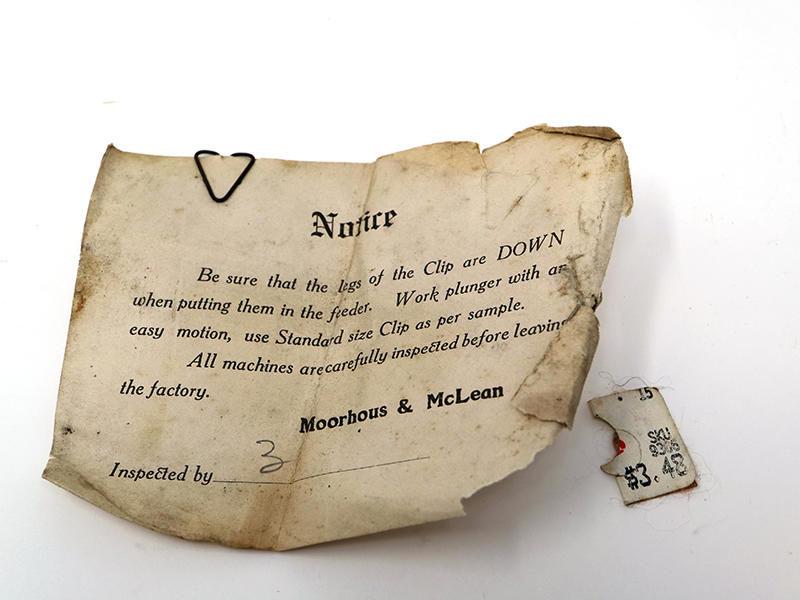 Notice
Be sure that the legs of the Clip are DOWN
when putting them in the feeder. Work plunger with an
easy motion, use Standard size Clip as per sample.
All machines are carefully inspected before leaving
the factory.
Moorhous & McLean
Inspected by 3
15
SKU
$3.48